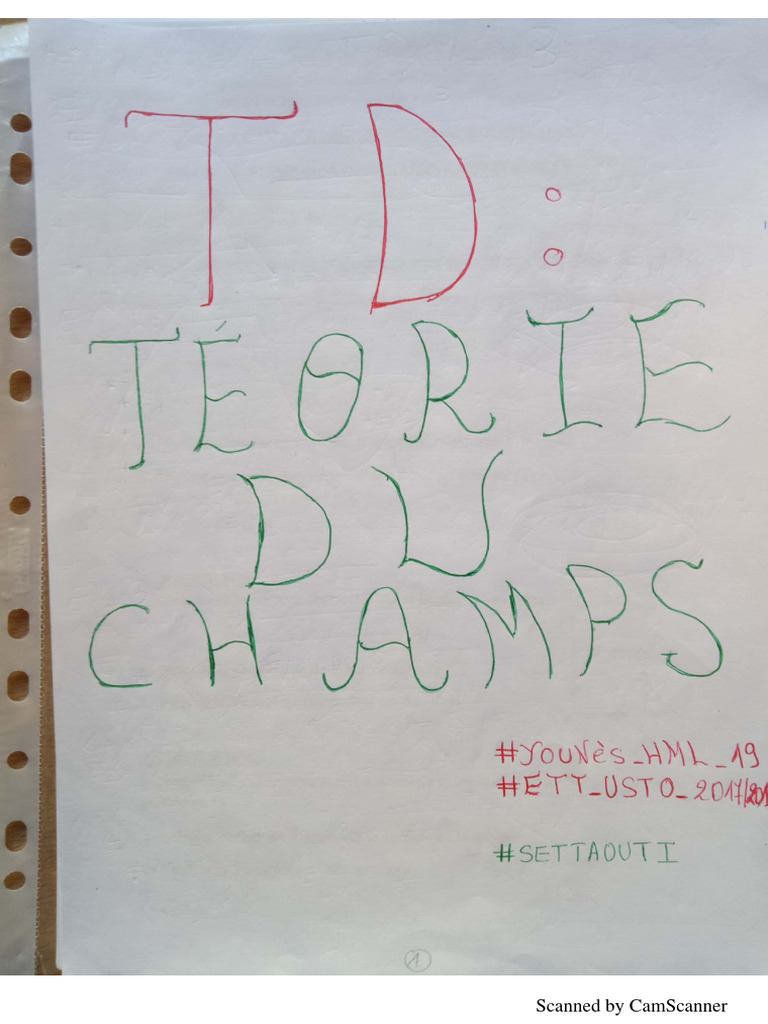 TD:
TÉORIE
DU
CHAMPS
#YOUNès_HML_19
#ETT_USTO_2017/201
#SETTAOUTI
1
Scanned by CamScanner